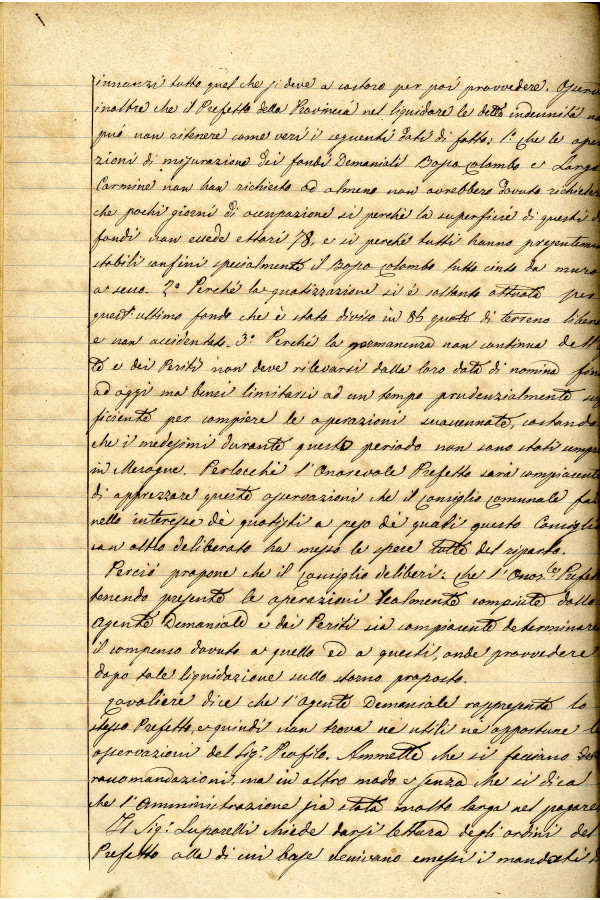 innanzi tutto quel che si deve a costoro per poi provvedere. Osserva
inoltre che il Prefetto della Provincia nel liquidare le dette indennità non
può non ritenere come veri i seguenti dati di fatto: 1.° che le opera
zioni di misurazione dei fondi Demaniali Bosco Colombo e Largo
Carmine non han richiesto od almeno non avrebbero dovuto richiedere
che pochi giorni di occupazione si perchè la superficie di questi due
fondi non eccede ettari 78, e si perchè tutti hanno presentemente
stabili confini specialmente il Bosco Colombo tutto cinto da muro
a secco. 2.° Perchè la quotizzazione si è soltanto attuata per
quest'ultimo fondo che è stato diviso in 86 quote di terreno libero
e non accidentato. 3.° Perchè la permanenza non continua dell'
te e dei Periti non deve rilevarsi dalla loro data di nomina fino
ad oggi ma bensi limitarsi ad un tempo prudenzialmente suf
ficiente per compiere le operazioni suaccennate, costando
che i medesimi durante questo periodo non sono stati sempre
in Merogne. Perlocchè l'Onorevole Prefetto sarà compiacente
di apprezzare queste osservazioni che il Consiglio comunale fa
nello interesse dè quotisti a peso dè quali questo Consiglio
con altro deliberato ha messo le spese tutte del riparto.
Perciò propone che il Consiglio deliberi: che l'Onor.le Prefetto
tenendo presente le operazioni realmente compiute dallo
Agente Demaniale e dai Periti sia compiacente determinare
il compenso dovuto a quello ed a questi, onde provvedere
dopo tale liquidazione sullo storno proposto.
Cavaliere dice che l'Agente Demaniale rappresenta lo
stesso Prefetto, e quindi non trova nè utili nè opportune le
osservazioni del Sig.r Profilo. Ammette che si facciano delle
raccomandazioni, ma in altro modo e senza che si dica
che l'Amministrazione sia stata molto larga nel pagare
Il Sig.r Luparelli chiede darsi lettura degli ordini del
Prefetto alla di cui base venivano emessi i mandati di